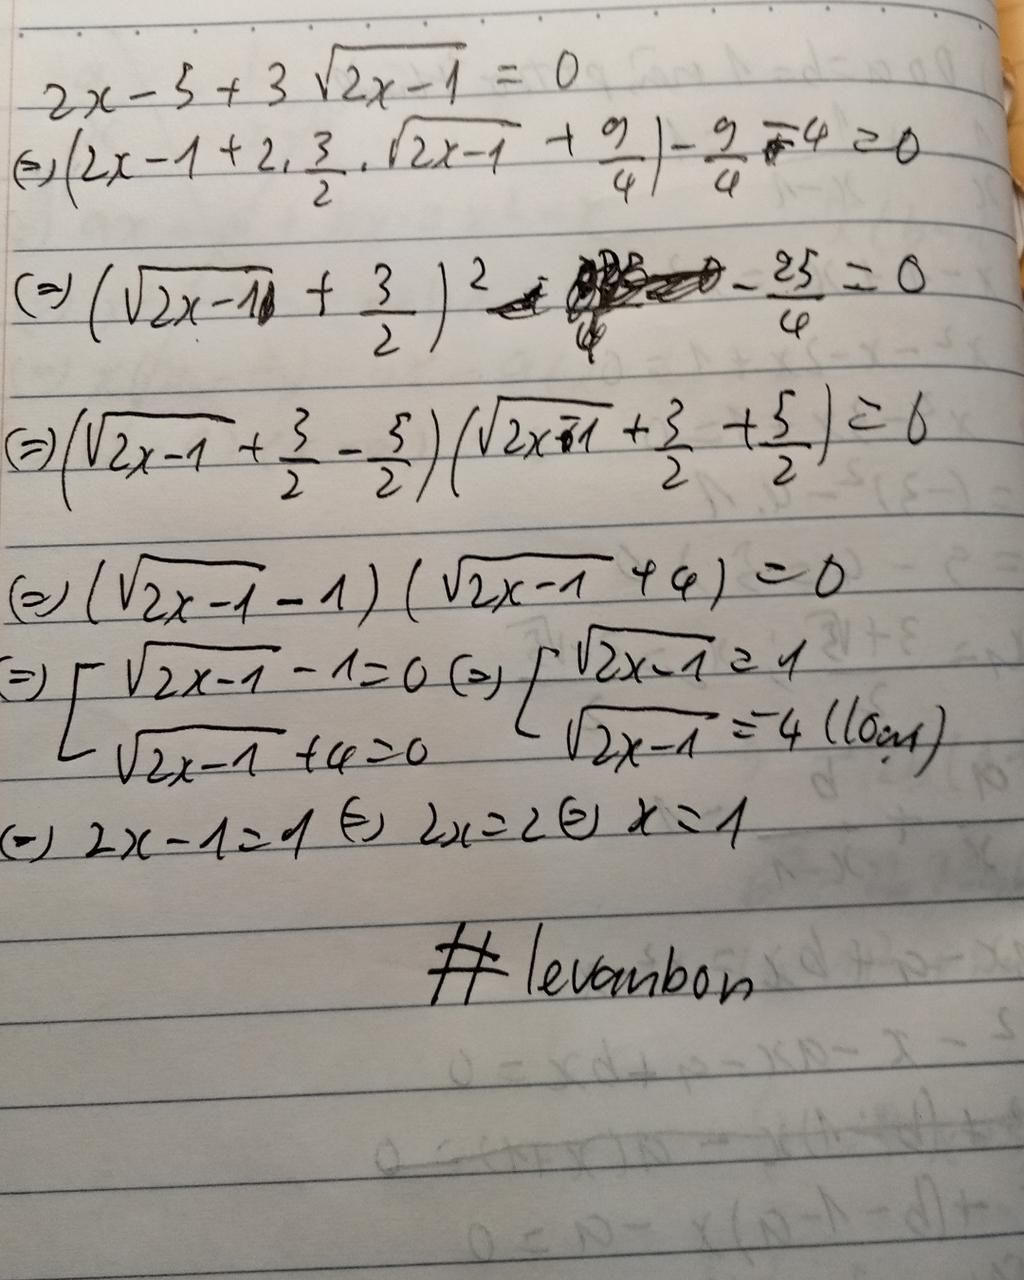 2x - 5 + 3√(2x-1) = 0
(=) (2x - 1 + 2. 3/2 . √(2x-1) + 9/4) - 9/4 - 4 = 0
(=) (√(2x-1) + 3/2)² - 25/4 = 0
(=) (√(2x-1) + 3/2 - 5/2) (√(2x-1) + 3/2 + 5/2) = 0
(=) (√(2x-1) - 1) (√(2x-1) + 4) = 0
(=) [ √(2x-1) - 1 = 0 (=) [ √(2x-1) = 1
√(2x-1) + 4 = 0 √(2x-1) = -4 (loại)
(=) 2x - 1 = 1 (=) 2x = 2 (=) x = 1
# levanbon